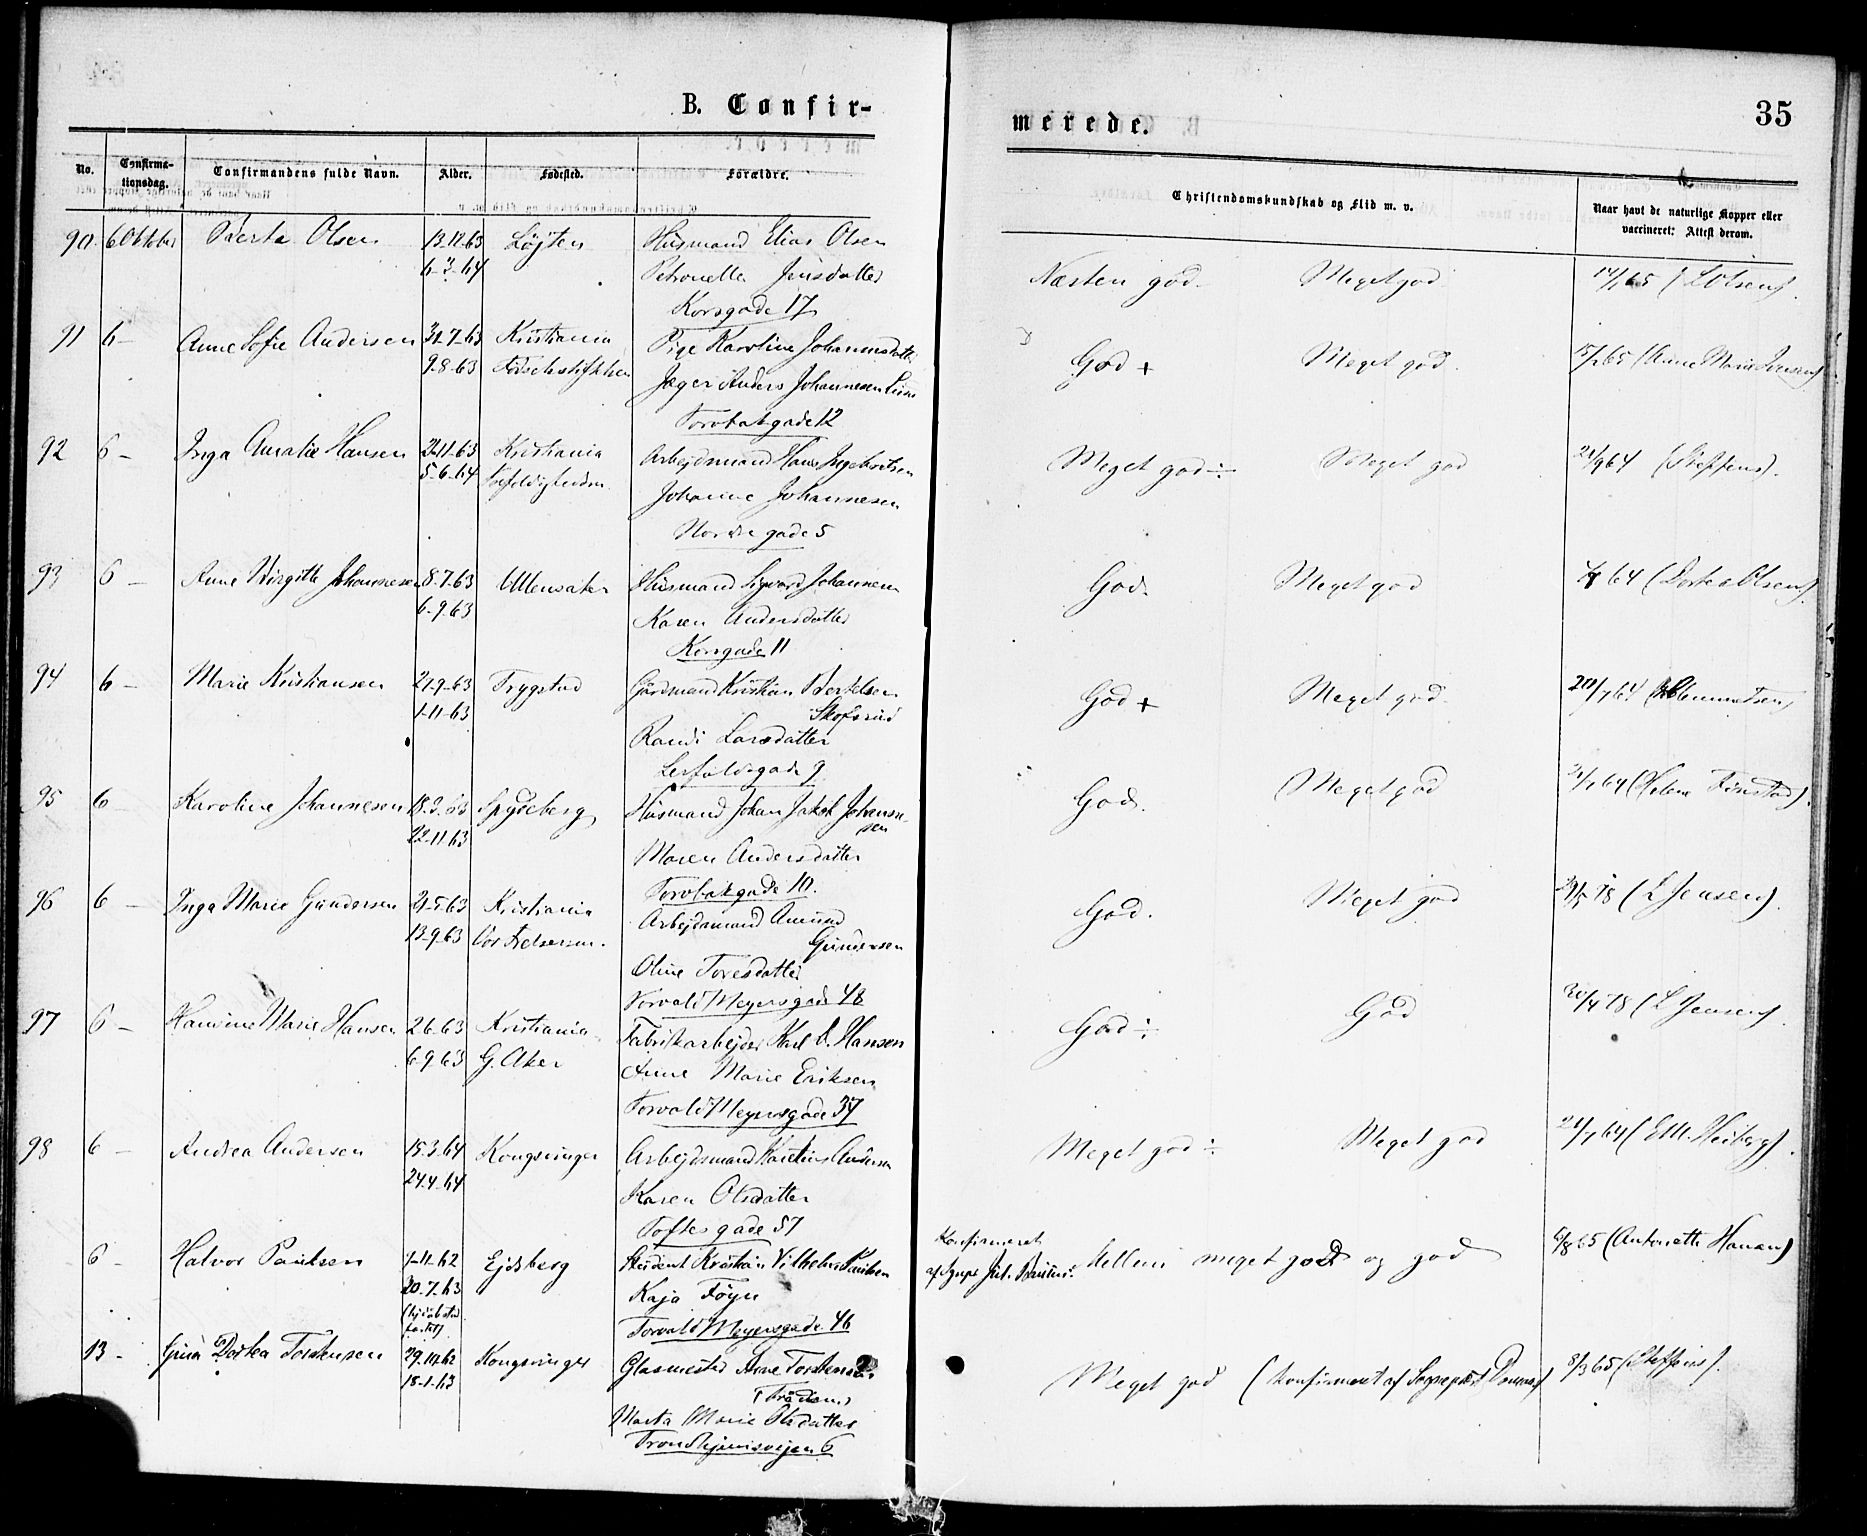 B. Confir-
merede.
35
No.
Confirma-
tionsdag.
Confirmandens fulde Navn.
Alder.
Fødested.
Forældre.
Christendomskundskab og Flid m. v.
Naar havt de naturlige Kopper eller
vaccineret: Attest derom.
90. 6 Oktober Berta Olsen 13.12.63 Løjten Husmand Elias Olsen
6-3-64 Petronelle Jensdatter
Korsgade 17
Næsten god. Meget god. 65 (L Olsen).
91 6 - Anne Sofie Andersen 31-7-63 Kristiania Pige Karoline Johannesdatter
9-8-63 Fødselsstiftelsen Jæger Anders Johannesen
Torvbakgade 12
God + Meget god. 65 (Anne Marie Jensen)
92 6 - Inga Amalie Hansen 21-11-63 Kristiania Arbejdsmand Hans Ingebretsen
5-6-64 Trefoldigheden Johanne Johannesen
Nordre gade 5
Meget god ÷ Meget god 21/9 64 (Steffens).
93 6 - Anne Birgitte Johannesen 8-7-63 Ullensaker Husmand Sigvard Johannesen
6-9-63 Karen Andersdatter
Korsgade 11
God. Meget god 64 (Dortea Olsen).
94 6 - Marie Kristiansen 21-9-63 Trygstad Gårdmand Kristian Bertelsen
1-11-63 Skofsrud
Randi Larsdatter
Lerfaldsgade 9
God + Meget god. 20/7 64
95 6 Karoline Johannesen 18.3.63 Spydeberg Husmand Johan Jakob Johannes-
sen
22-11-63 Maren Andersdatter
Torvbakgade 10.
God. Meget god 64 (Helene Finstad).
96 6 - Inga Marie Gundersen 21-5-63 Kristiania Arbejdsmand Amund
13-9-63 Vor Frelsersm. Gundersen
Oline Toresdatter
Torvald Meyersgade 48
God. Meget god 78 (L Jensen).
97 6 - Hansine Marie Hansen 2.6.63 Kristiania Fabrikarbejder Karl O. Hansen
6.9.63 G. Aker Anne Marie Eriksen
Torvald Meyersgade 37
God ÷ God 30/4 78 (L Jensen)
98 6 - Andrea Andersen 15.3.64 Kongsvinger Arbejdsmand Karelius Andersen
24.4.64 Karen Olsdatter
Toftes gade 57
Meget god ÷ Meget god 21/7 64 (E M. Heiberg).
6 - Halvor Paulsen 1-11-62 Ejdsberg Student Kristian Vilhelm Paulsen
20-7-63 Kaja Føyn
(hjemdøbt
Torvald Meyersgade 46
Konfirmeret
af Sgnpr. Jul. Bruun: Mellem meget god og god 6/8 65 (Antonette Hansen)
13 - Gina Dortea Torstensen 29.10.62 Kongsvinger Glasmester Arne Torstensen
18-1-63
Marta Marie Olsdatter
Trondhjemsvejen 6
Meget god (konfirmeret af Sogneprest ) 8/3 65 (Steffens).